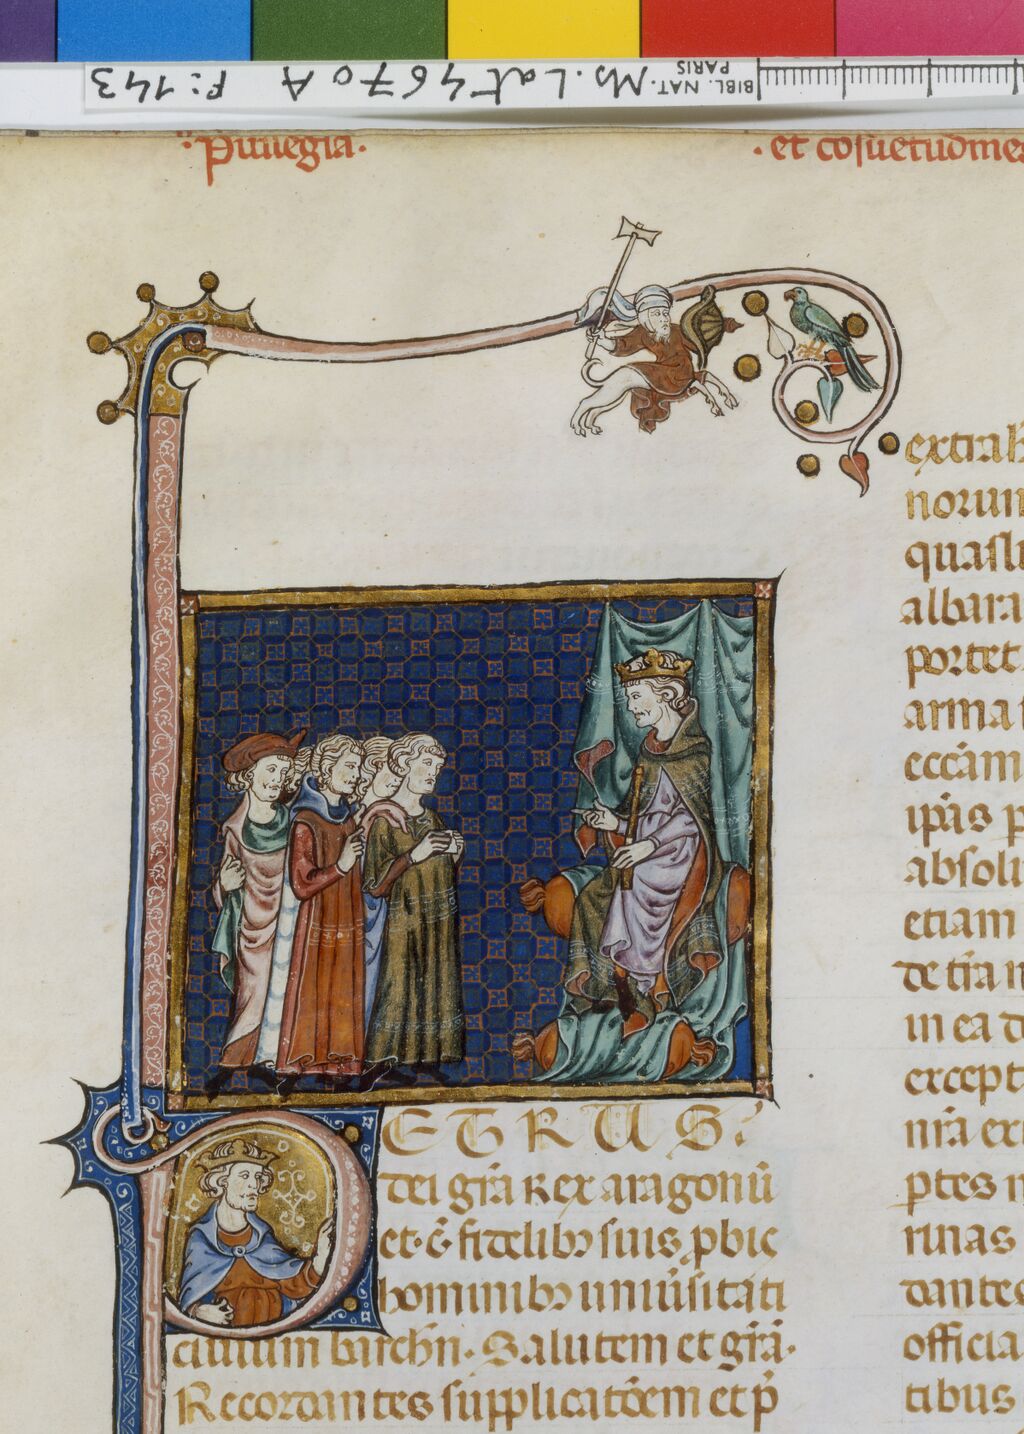 BIBL. NAT. Ms. Lat 4670A F: 143
PARIS
Privilegia.
et cosuetudines
PETRUS.
dei grã Rex aragonũ
et c̃. fidelibꝫ suis ꝓbis
hominibꝫ uniũsitati
ciuium barchñ. Salutem et grã.
Recordantes supplicatõem et p̃
extrah
norum
quasli
albara
portet
arma
eccãm
ip̃as p
absolu
etiam
de tr̃a
in ea d
except
nr̃a ex
ꝑtes n
rinas
dantes
officia
tibus